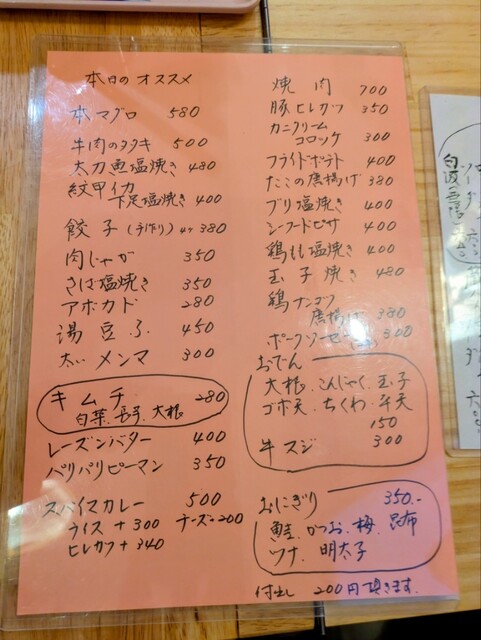 本日のオススメ
本マグロ 580
牛肉のタタキ 500
太刀魚塩焼き 480
紋甲イカ
下足塩焼き 400
餃子(手作り)4ヶ 380
肉じゃが 350
さば塩焼き 350
アボカド 280
湯豆ふ 450
太いメンマ 300
キムチ 280
白菜、長芋、大根
レーズンバター 400
パリパリピーマン 350
スパイスカレー 500
ライス+300 チーズ+200
ヒレカツ+340
焼肉 700
豚ヒレカツ 350
カニクリーム
コロッケ 300
フライドポテト 400
たこの唐揚げ 380
ブリ塩焼き 400
シーフードピザ 400
鶏もも塩焼き 400
玉子焼き 480
鶏ナンコツ
唐揚げ 380
ポークソーセージ 300
おでん
大根、こんにゃく、玉子
ゴボ天、ちくわ、平天
150
牛スジ 300
おにぎり 350.-
鮭、かつお、梅、昆布
ツナ、明太子
付出し 200円頂きます。